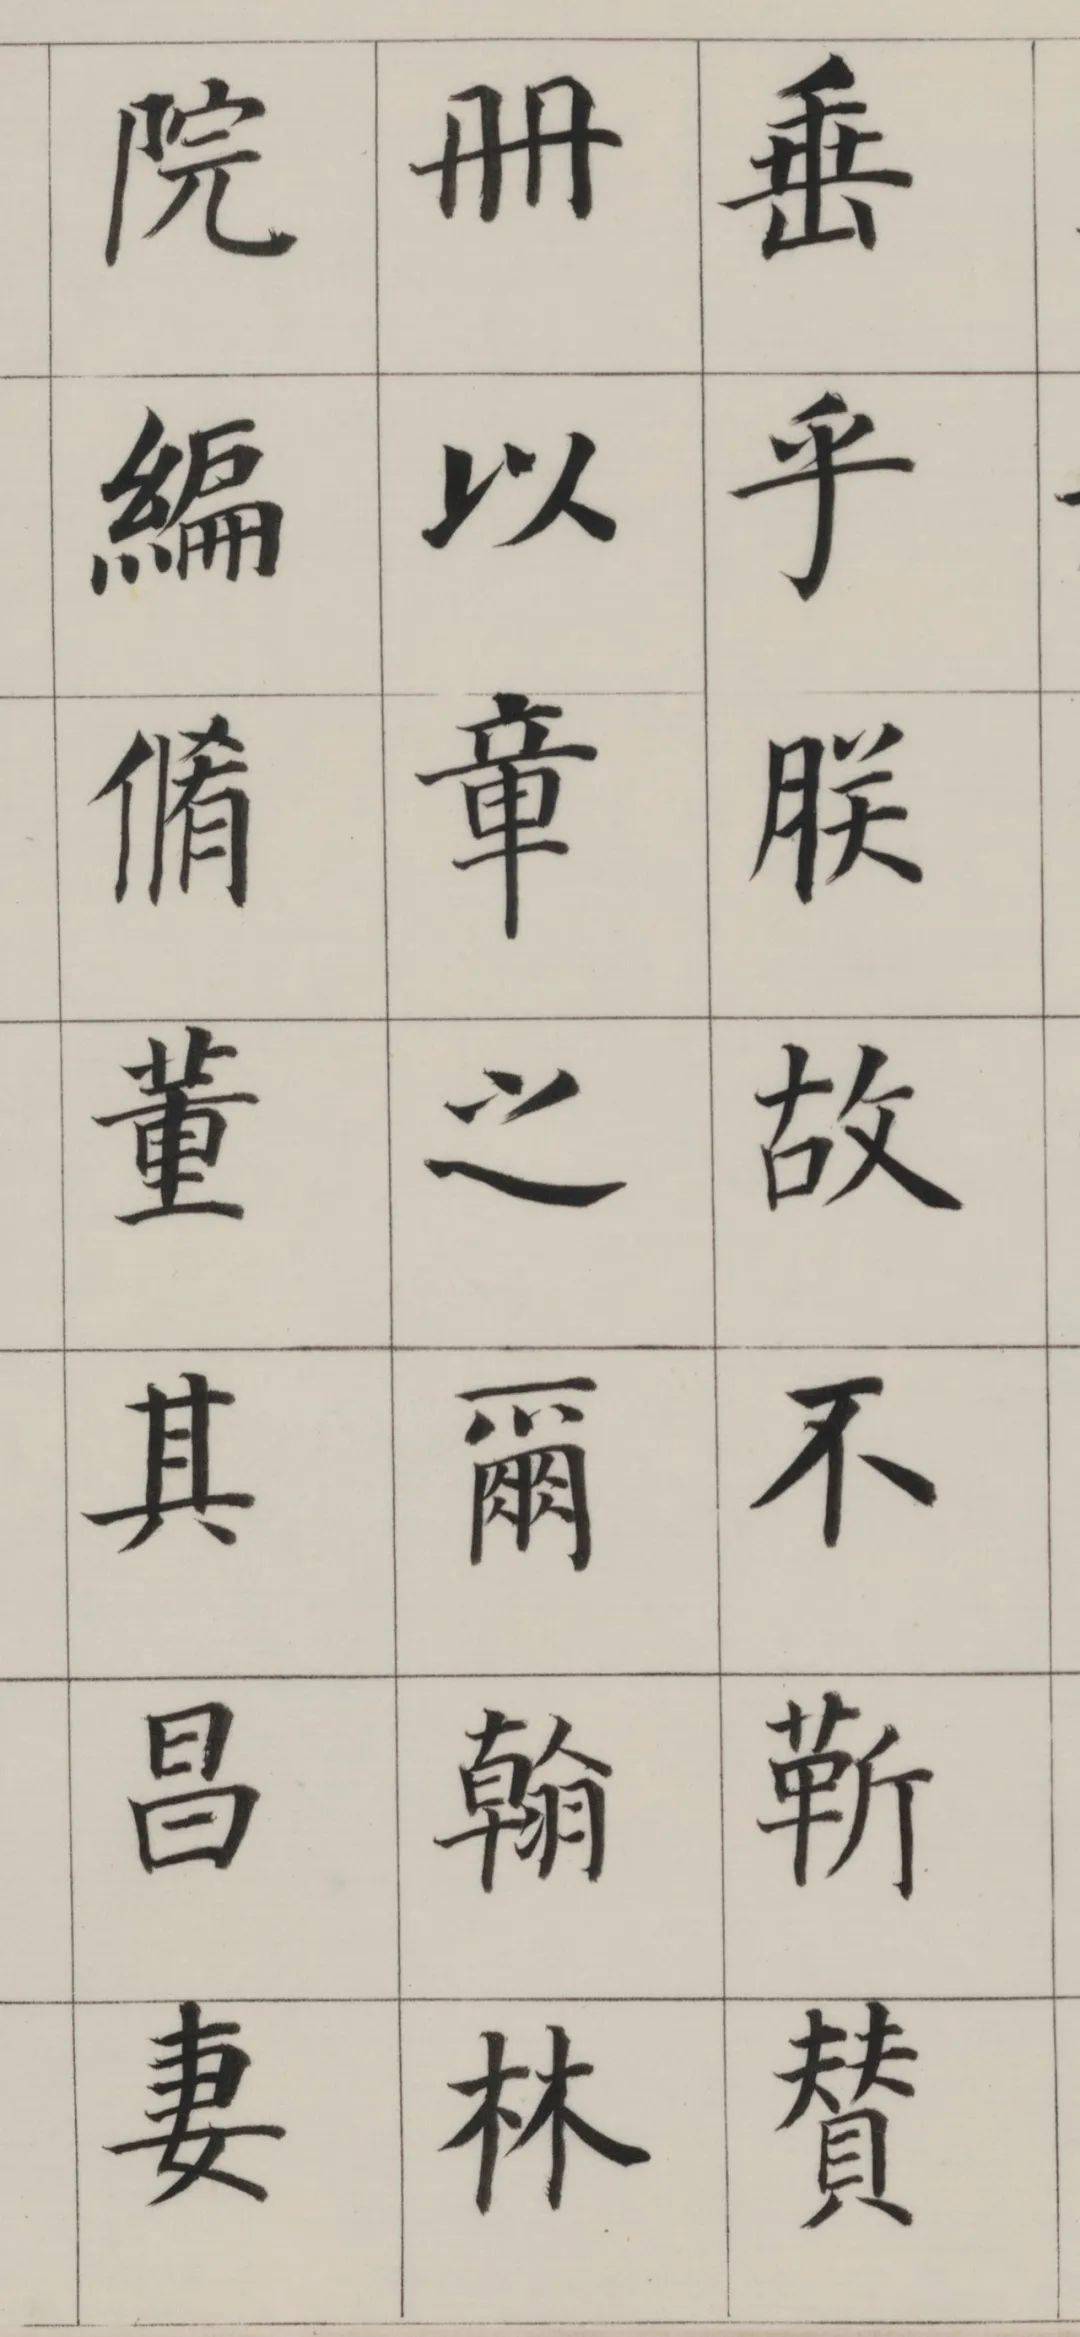 垂乎朕故不靳賛
冊以章之爾翰林
院編脩董其昌妻